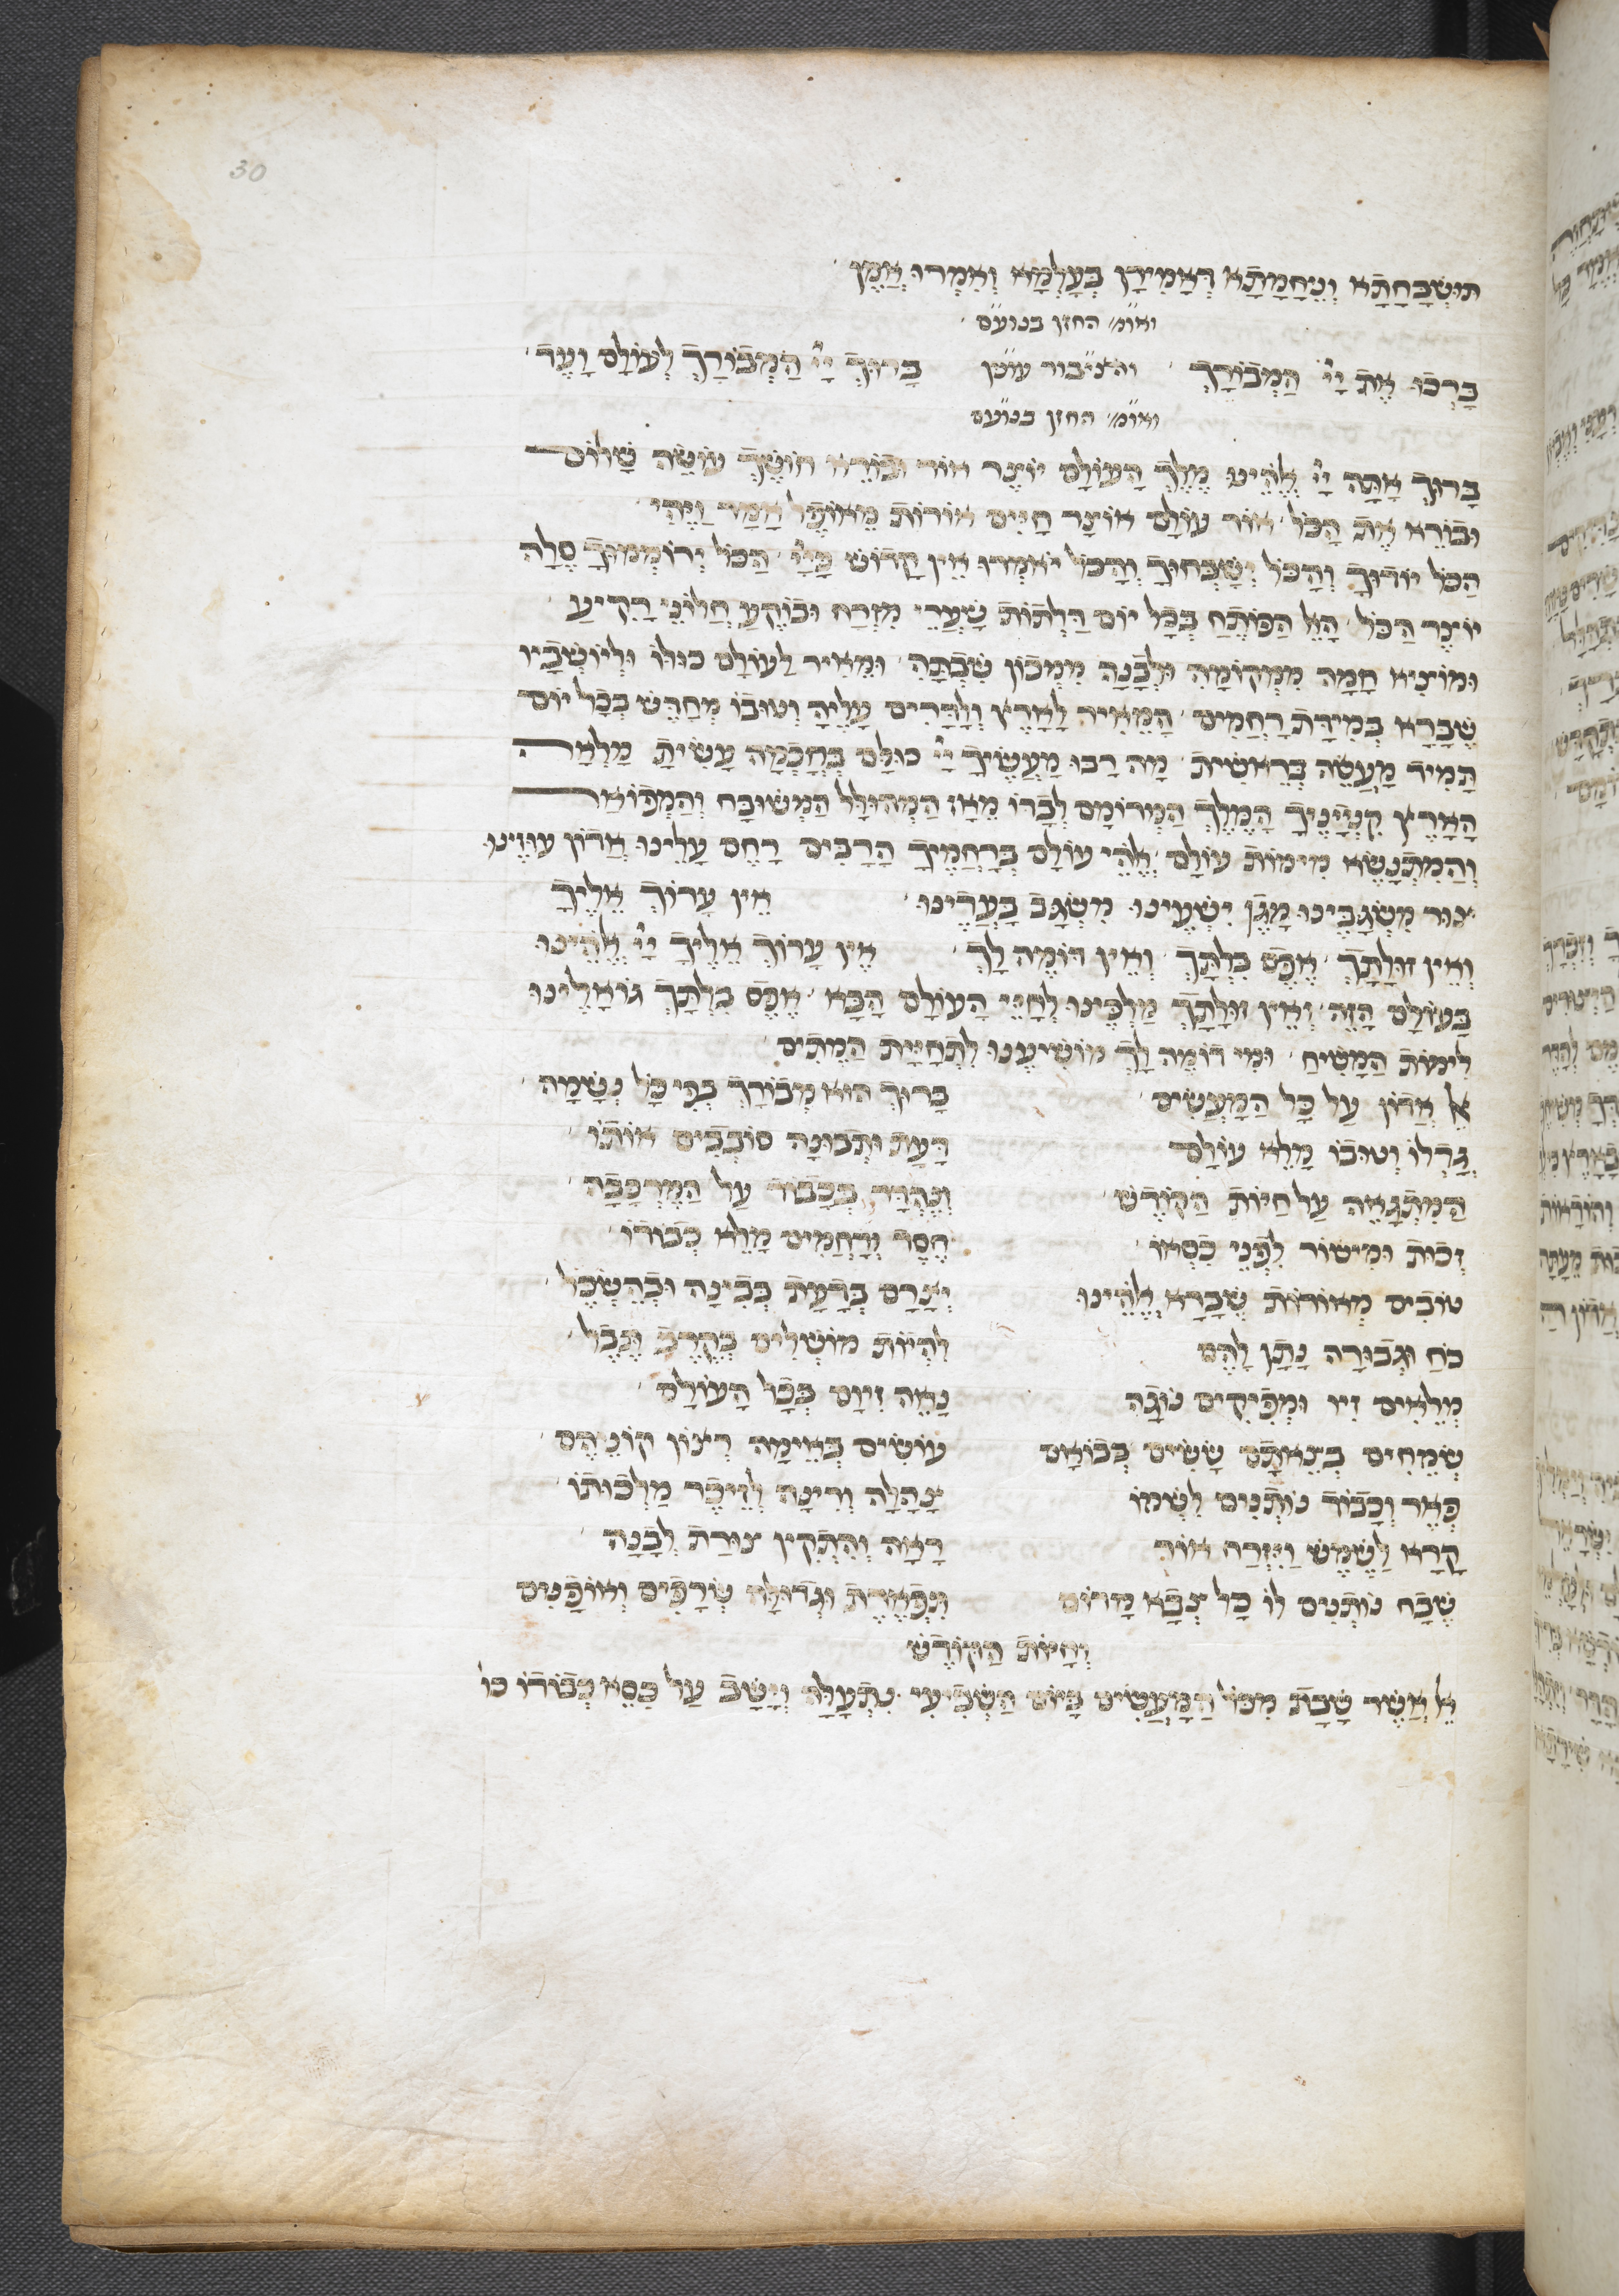 30
תּוּשְׁבְּחָתָא וְנֶחָמָתָא דַּאֲמִירָן בְּעָלְמָא וְאִמְרוּ אָמֵן
ואומ' החזן בנועם
בָּרְכוּ אֶת יְיָ הַמְבוֹרָךְ והציבור עונין בָּרוּךְ יְיָ הַמְבוֹרָךְ לְעוֹלָם וָעֶד
ואומ' החזן בנועם
בָּרוּךְ אַתָּה יְיָ אֱלֹהֵינוּ מֶלֶךְ הָעוֹלָם יוֹצֵר אוֹר וּבוֹרֵא חוֹשֶׁךְ עוֹשֶׂה שָׁלוֹם
וּבוֹרֵא אֶת הַכֹּל אוֹר עוֹלָם אוֹצָר חַיִּים אוֹרוֹת מֵאוֹפֶל אָמַר וַיֶּהִי
הַכֹּל יוֹדוּךָ וְהַכֹּל יְשַׁבְּחוּךָ וְהַכֹּל יֹאמְרוּ אֵין קָדוֹשׁ כַּייָ הַכֹּל יְרוֹמְמוּךָ סֶלָה
יוֹצֵר הַכֹּל הָאֵל הַפּוֹתֵחַ בְּכָל יוֹם דַּלְתוֹת שַׁעֲרֵי מִזְרָח וּבוֹקֵעַ חַלּוֹנֵי רָקִיעַ
וּמוֹצִיא חַמָּה מִמְּקוֹמָהּ וּלְבָנָה מִמְּכוֹן שִׁבְתָּהּ וּמֵאִיר לָעוֹלָם כּוּלּוֹ וּלְיוֹשְׁבָיו
שֶׁבָּרָא בְּמִידַּת רַחֲמִים הַמֵּאִיר לָאָרֶץ וְלַדָּרִים עָלֶיהָ וְטוּבוֹ מְחַדֵּשׁ בְּכָל יוֹם
תָּמִיד מַעֲשֵׂה בְרֵאשִׁית מָה רַבּוּ מַעֲשֶׂיךָ יְיָ כּוּלָּם בְּחָכְמָה עָשִׂיתָ מָלְאָה
הָאָרֶץ קִנְיָינֶיךָ הַמֶּלֶךְ הַמְרוֹמָם לְבַדּוֹ מֵאָז הַמְהוּלָּל הַמְשׁוּבָּח וְהַמְפוֹאָר
וְהַמִּתְנַשֵּׂא מִימוֹת עוֹלָם אֱלֹהֵי עוֹלָם בְּרַחֲמֶיךָ הָרַבִּים רַחֵם עָלֵינוּ אֲדוֹן עוּזֵּינוּ
צוּר מִשְׂגַּבֵּינוּ מָגֵן יִשְׁעֵינוּ מִשְׂגָּב בַּעֲדֵינוּ אֵין עָרוֹךְ אֵלֶיךָ
וְאֵין זוּלָתָךְ אֶפֶס בִּלְתָּךְ וְאֵין דּוֹמֶה לָּךְ אֵין עָרוֹךְ אֵלֶיךָ יְיָ אֱלֹהֵינוּ
בָּעוֹלָם הַזֶּה וְאֵין זוּלָתָךְ מַלְכֵּינוּ לְחַיֵּי הָעוֹלָם הַבָּא אֶפֶס בִּלְתָּךְ גּוֹאֲלֵינוּ
לִימוֹת הַמָּשִׁיחַ וּמִי דוֹמֶה לָּךְ מוֹשִׁיעֵנוּ לִתְחִיַּית הַמֵּתִים
אֵל אָדוֹן עַל כָּל הַמַּעֲשִׂים בָּרוּךְ הוּא מְבוֹרָךְ בְּפִי כָּל נְשָׁמָה
גָּדְלוֹ וְטוּבוֹ מָלֵא עוֹלָם דַּעַת וּתְבוּנָה סוֹבְבִים אוֹתוֹ
הַמִּתְגָּאֶה עַל חַיּוֹת הַקּוֹדֶשׁ וְנֶהְדָּר בְּכָבוֹד עַל הַמֶּרְכָּבָה
זְכוּת וּמִישׁוֹר לִפְנֵי כִסְאוֹ חֶסֶד וְרַחֲמִים מָלֵא כְבוֹדוֹ
טוֹבִים מְאוֹרוֹת שֶׁבָּרָא אֱלֹהֵינוּ יְצָרָם בְּדַעַת בְּבִינָה וּבְהַשְׂכֵּל
כֹּחַ וּגְבוּרָה נָתַן לָהֶם לִהְיוֹת מוֹשְׁלִים בְּקֶרֶב תֵּבֵל
מְלֵאִים זִיו וּמְפִיקִים נוֹגַהּ נָאֶה זִיוָם בְּכָל הָעוֹלָם
שְׂמֵחִים בְּצֵאתָם שָׂשִׂים בְּבוֹאָם עוֹשִׂים בְּאֵימָה רְצוֹן קוֹנֵיהֶם
פְּאֵר וְכָבוֹד נוֹתְנִים לִשְׁמוֹ צָהֳלָה וְרִינָּה לְזֵיכֶר מַלְכוּתוֹ
קָרָא לַשֶּׁמֶשׁ וַיִּזְרַח אוֹר רָאָה וְהִתְקִין צוּרַת לְבָנָה
שֶׁבַח נוֹתְנִים לוֹ כָּל צְבָא מָרוֹם תִּפְאֶרֶת וּגְדוּלָּה שְׂרָפִים וְאוֹפַנִּים
וְחַיּוֹת הַקּוֹדֶשׁ
אֵל אֲשֶׁר שָׁבַת מִכָּל הַמַּעֲשִׂים בַּיּוֹם הַשְּׁבִיעִי נִתְעַלָּה וְיָשַׁב עַל כִּסֵּא כְבוֹדוֹ כו'